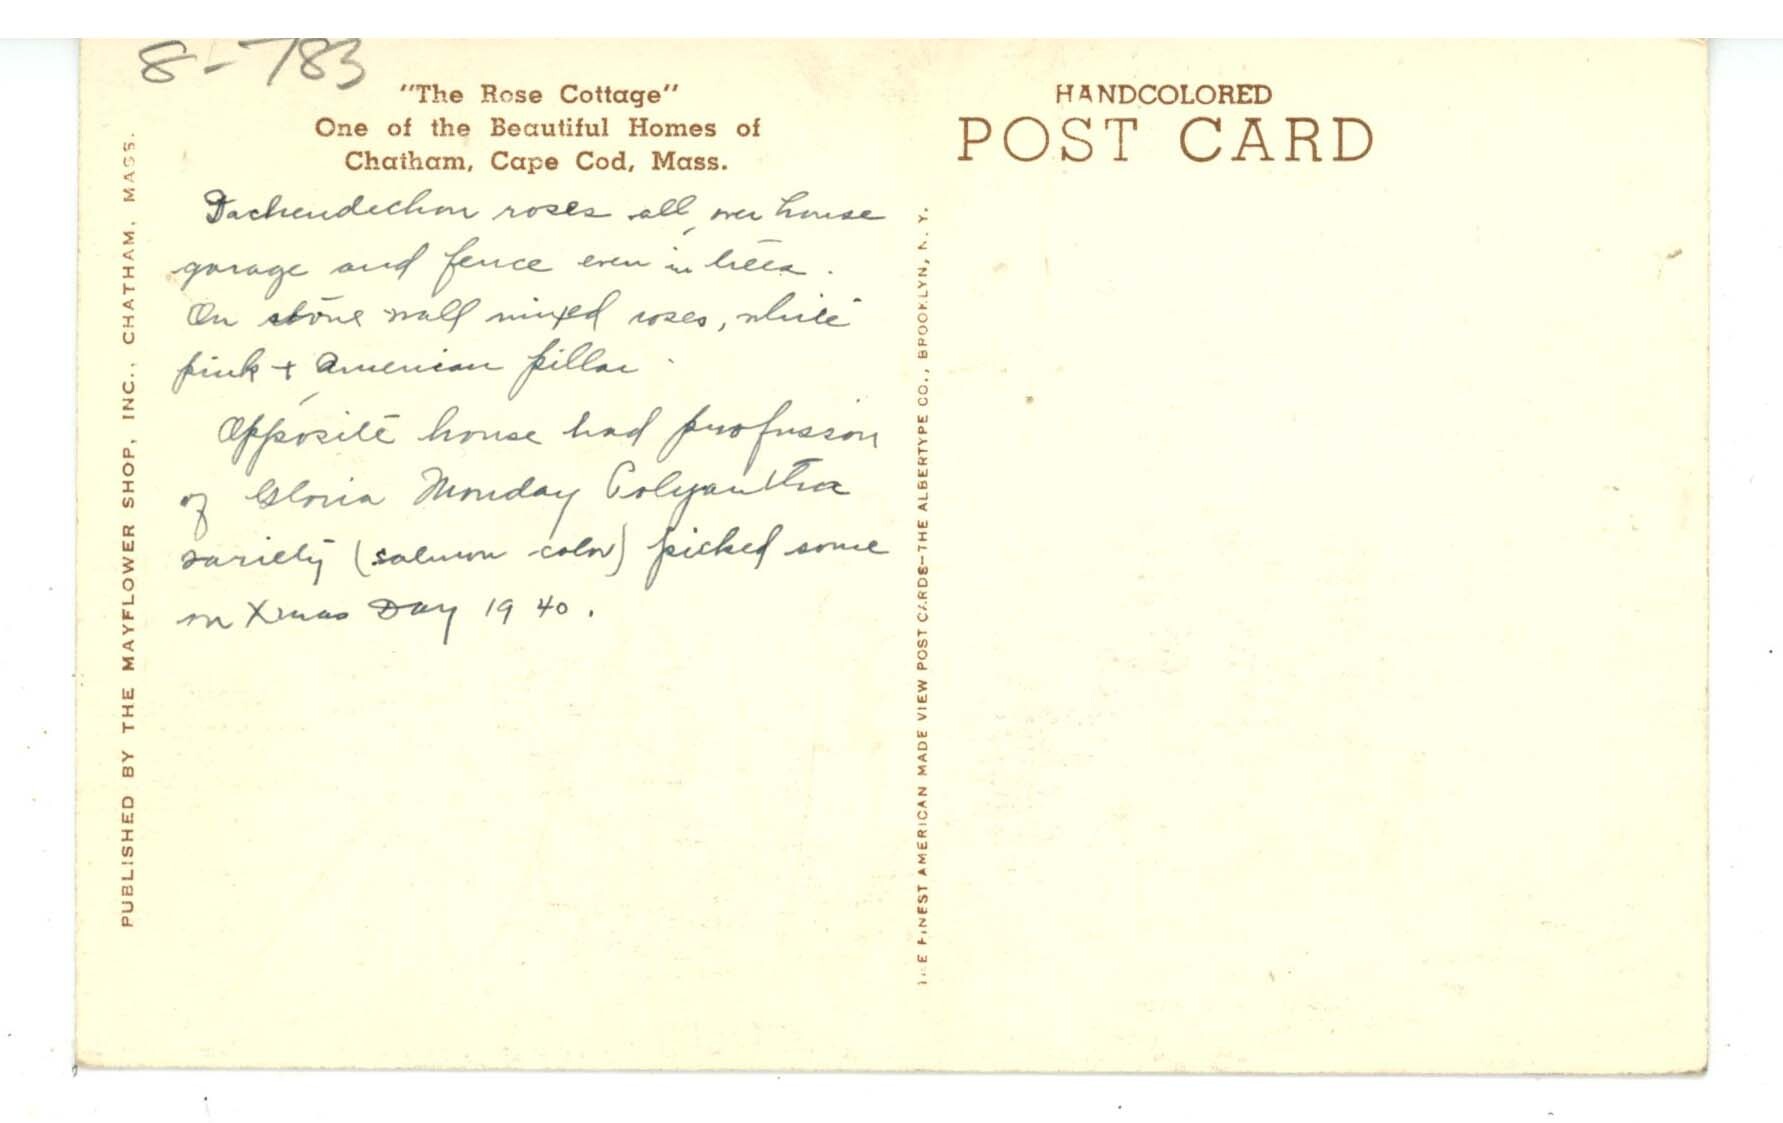 8-783
"The Rose Cottage"
One of the Beautiful Homes of
Chatham, Cape Cod, Mass.
roses all over house
garage and fence even in trees.
On stone wall mixed roses, white
pink + American pillar
Opposite house had profusion
of Gloria Monday Polyantha
variety (salmon color) picked some
on Xmas Day 1940.
PUBLISHED BY THE MAYFLOWER SHOP, INC., CHATHAM, MASS.
THE FINEST AMERICAN MADE VIEW POST CARDS—THE ALBERTYPE CO., BROOKLYN, N. Y.
HANDCOLORED
POST CARD